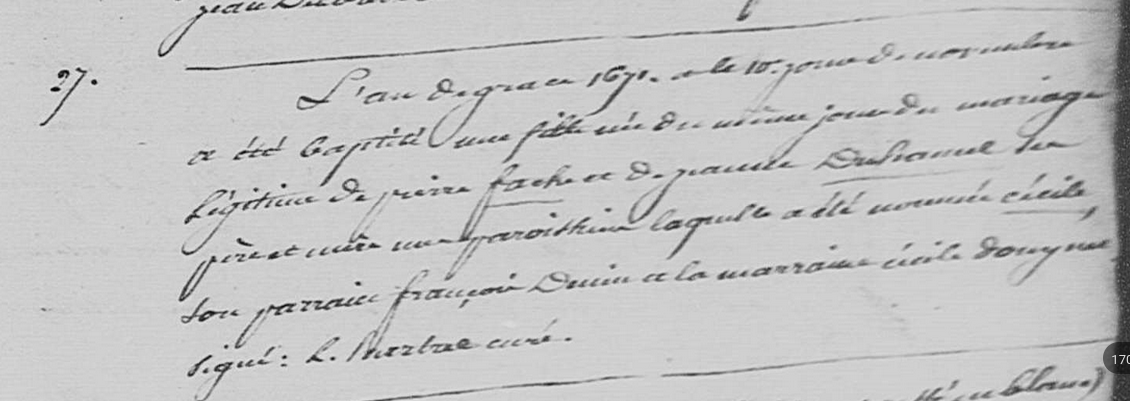 27.
L'an de grace 1671. a le 10e jour de novembre
a été baptisé une fille née du même jour du mariage
légitime de pierre fache et de jeanne Duhamel ses
père et mère mes paroissiens laquelle a été nommée cécile,
son parrain françois Duin et la marraine cécile
signé: L. curé.